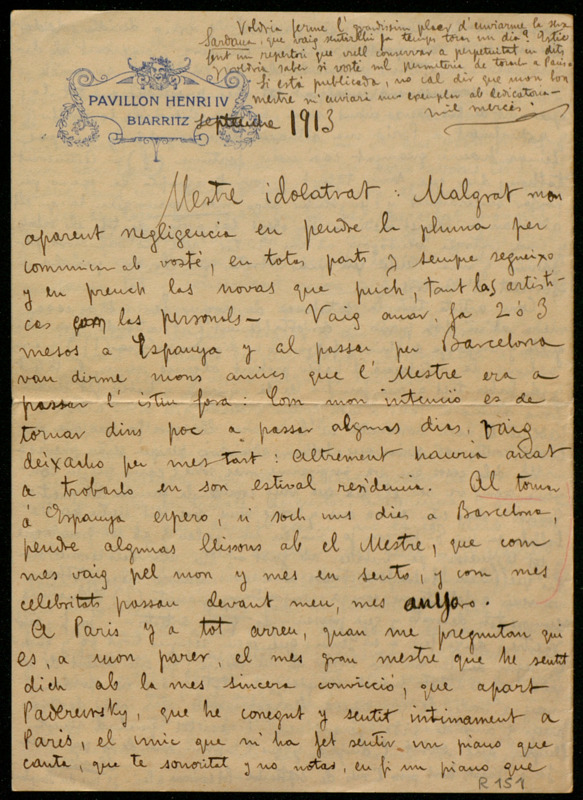 Voldria ferme l' grandissim plaer d'enviarme la seva
Sardana, que vaig sentirli fa temps tocar un dia?
fent un repertori que vull conservar a perpetuitat en dits
Voldria saber si vosté m'l permeteria de tocarla a Paris.
Si está publicada, no cal dir que mon bon
mestre m'enviará un exemplar ab dedicatoria—
mil mercés.
PAVILLON HENRI IV
BIARRITZ
septembre 1913
Mestre idolatrat: Malgrat mon
aparent negligencia en pendre la pluma per
comunicar ab vosté, en totas parts y sempre segueixo
y en prench las novas que puch, tant las artisti-
cas com las personals— Vaig anar, fa 2 ó 3
mesos a Espanya y al passar per Barcelona
van dirme mons amics que l' Mestre era a
passar l' istiu fora: Com mon intenció es de
tornar dins poc a passar algunas dias, vaig
deixarho per mes tart: altrement hauria anat
a trobarlo en son estival residencia. Al tornar
á Espanya espero, si soch uns dies a Barcelona,
pendre algunas llissons ab el Mestre, que com
mes vaig pel mon y mes en sento, y com mes
celebritats passan devant meu, mes anyoro.
A Paris y a tot arreu, quan me preguntan qui
es, a mon parer, el mes gran mestre que he sentit
dich ab la mes sincera convicció, que apart
Paderewsky, que he conegut y sentit intimament a
Paris, el unic que m'ha fet sentir un piano que
canta, que te sonoritat y no notas, en fi un piano que
R 151